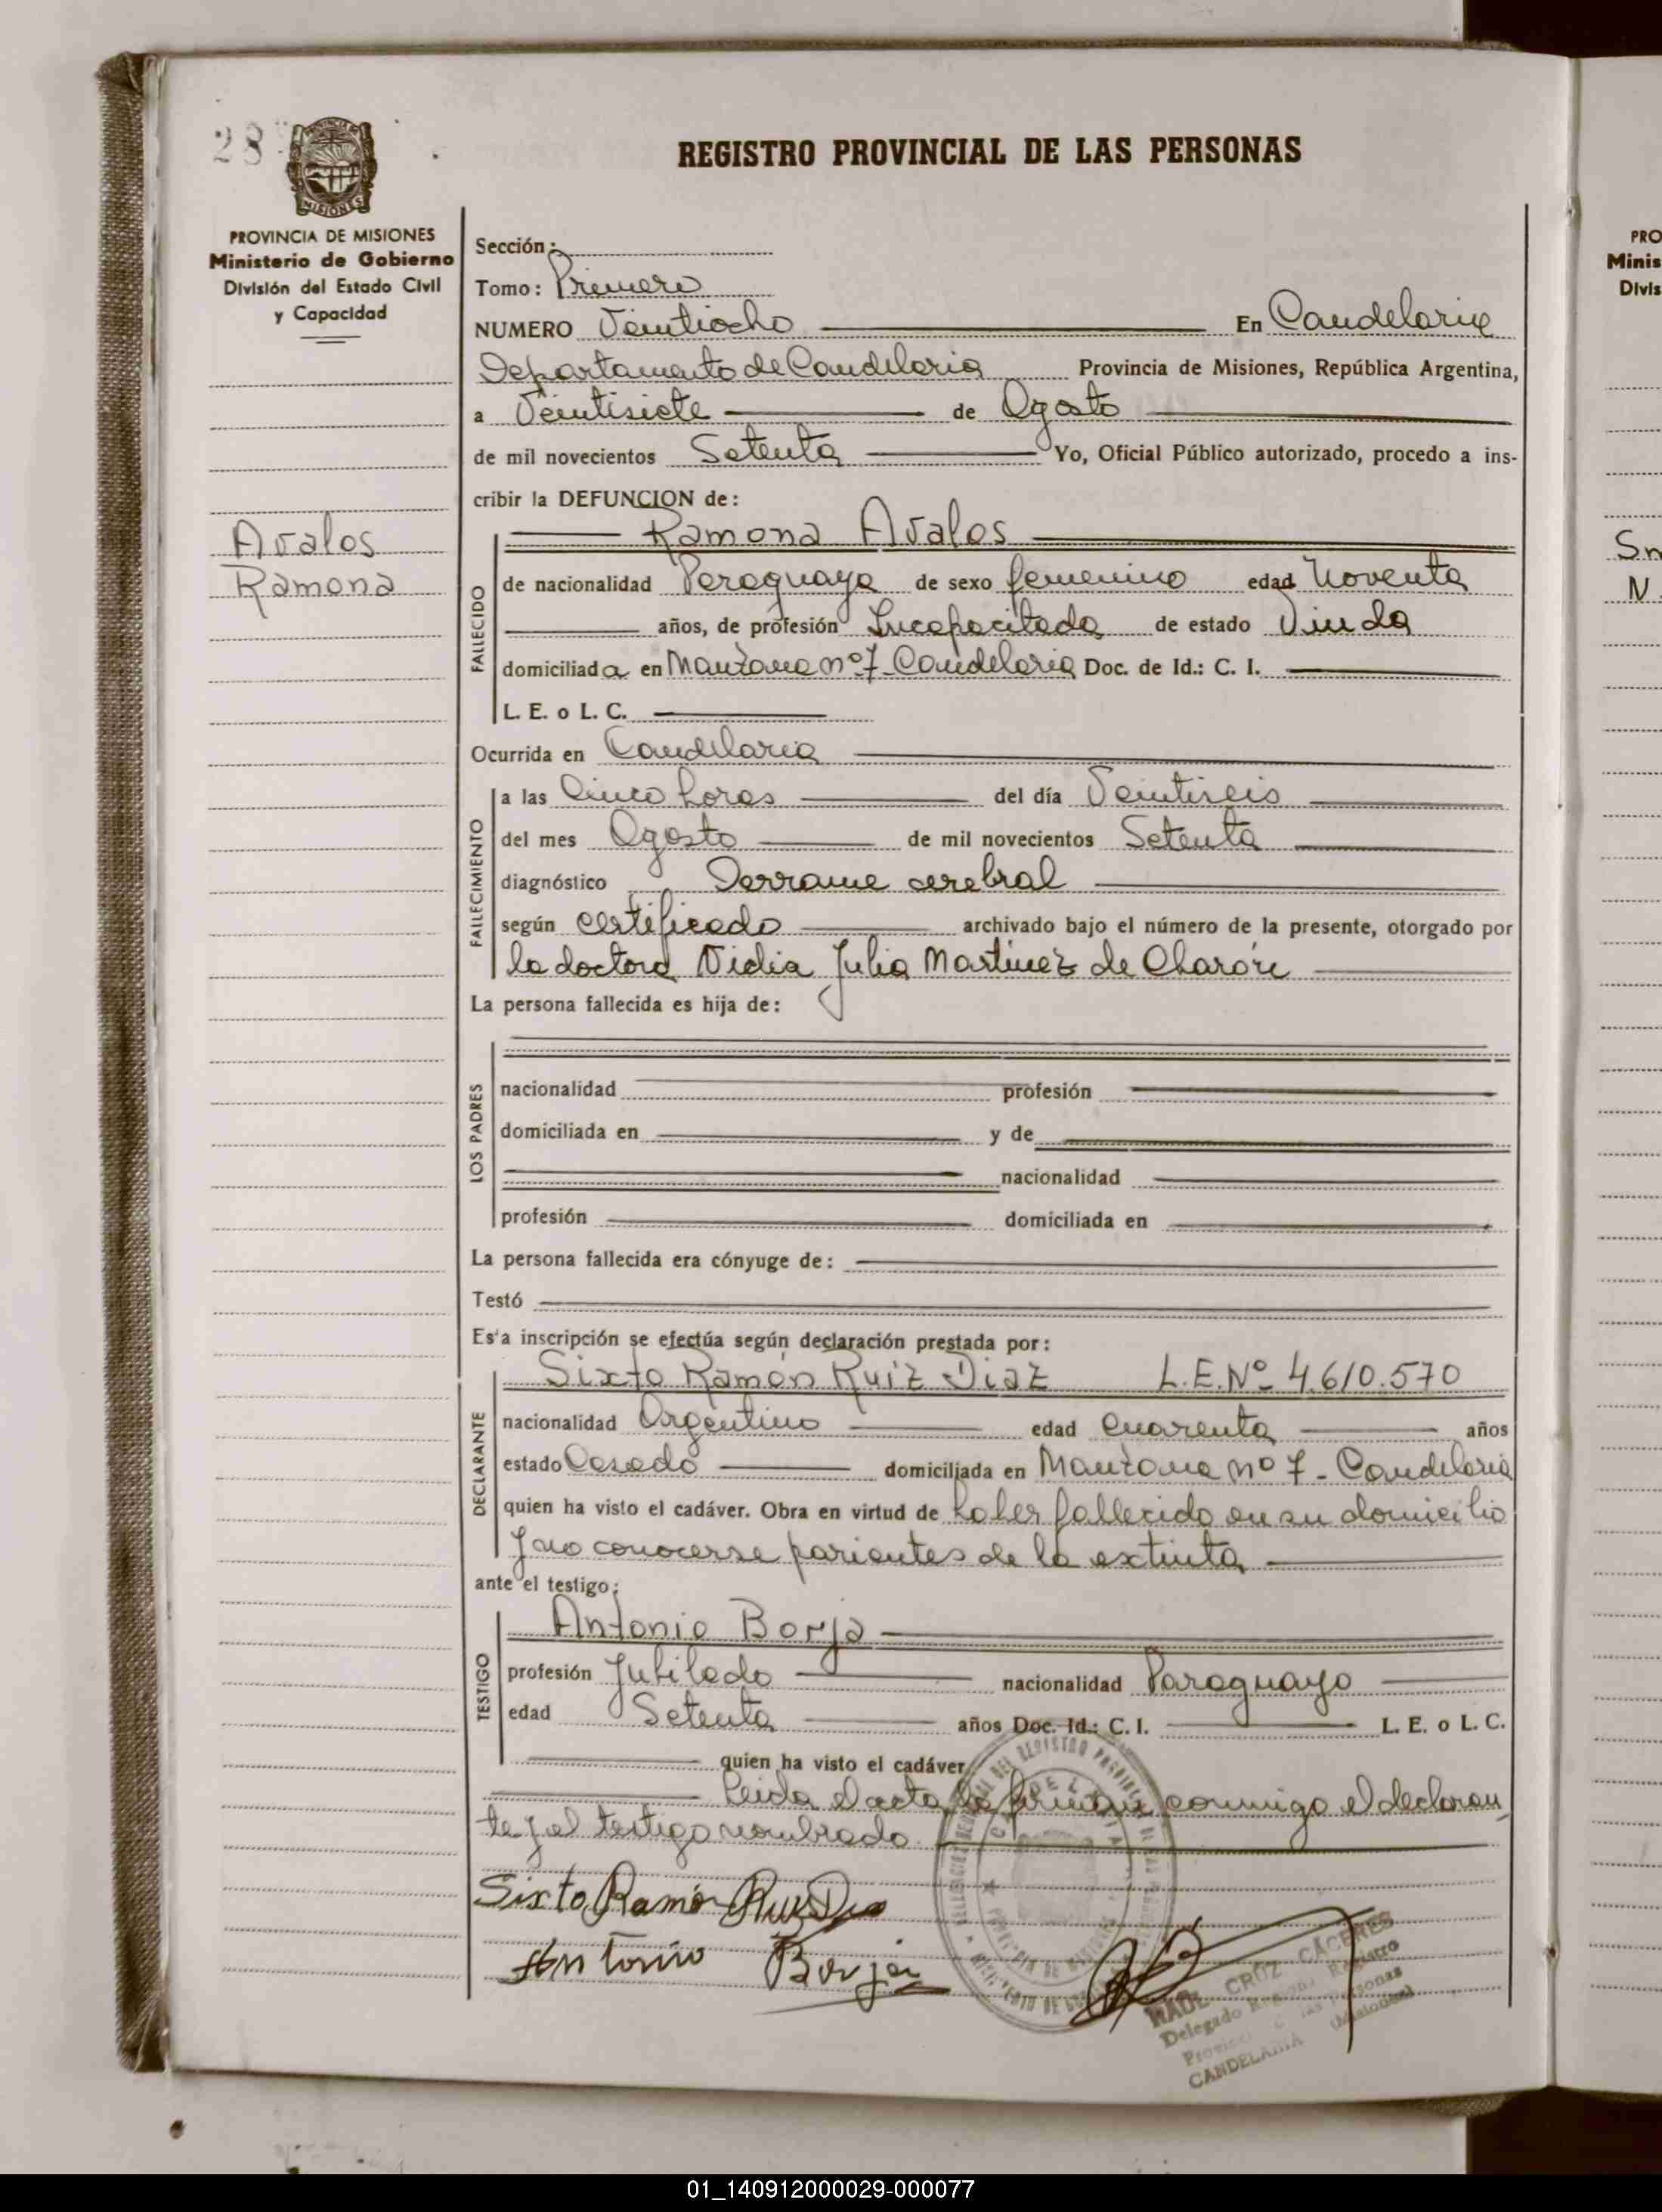 28
PROVINCIA DE MISIONES
Ministerio de Gobierno
División del Estado Civil
y Capacidad
REGISTRO PROVINCIAL DE LAS PERSONAS
Sección:
Tomo: Primero
NUMERO Veintiocho En Candelaria
Departamento de Candelaria Provincia de Misiones, República Argentina,
a Veintisiete de Agosto
de mil novecientos Setenta Yo, Oficial Público autorizado, procedo a ins-
cribir la DEFUNCION de:
Avalos
Ramona
Ramona Avalos
FALLECIDO
de nacionalidad Paraguaya de sexo femenino edad Noventa
años, de profesión Incapacitada de estado Viuda
domiciliada en Manzana nº 7 - Candelaria Doc. de Id.: C. I.
L. E. o L. C.
Ocurrida en Candelaria
FALLECIMIENTO
a las Cinco horas del día Veintiseis
del mes Agosto de mil novecientos Setenta
diagnóstico Derrame cerebral
según certificado archivado bajo el número de la presente, otorgado por
la doctora Nidia Julia Martinez de
La persona fallecida es hija de:
LOS PADRES
nacionalidad profesión
domiciliada en y de
nacionalidad
profesión domiciliada en
La persona fallecida era cónyuge de:
Testó
Es'a inscripción se efectúa según declaración prestada por:
DECLARANTE
Sixto Ramón Ruiz Diaz L.E.Nº 4.610.570
nacionalidad Argentino edad cuarenta años
estado Casado domiciliada en Manzana nº 7 - Candelaria
quien ha visto el cadáver. Obra en virtud de haber fallecido en su domicilio
y no conocerse parientes de la extinta
ante el testigo:
TESTIGO
Antonio Borja
profesión Jubilado nacionalidad Paraguayo
edad Setenta años Doc. Id.: C. I. L. E. o L. C.
quien ha visto el cadáver
Leida el acta, la firman conmigo el declaran
te y el testigo nombrado.
Sixto Ramón Ruiz Diaz
Antonio Borja
RAUL CRUZ CÁCERES
Delegado Registro
Personas
CANDELARIA (Misiones)
01_140912000029-000077
PRO
Minis
Divis
Sn
N